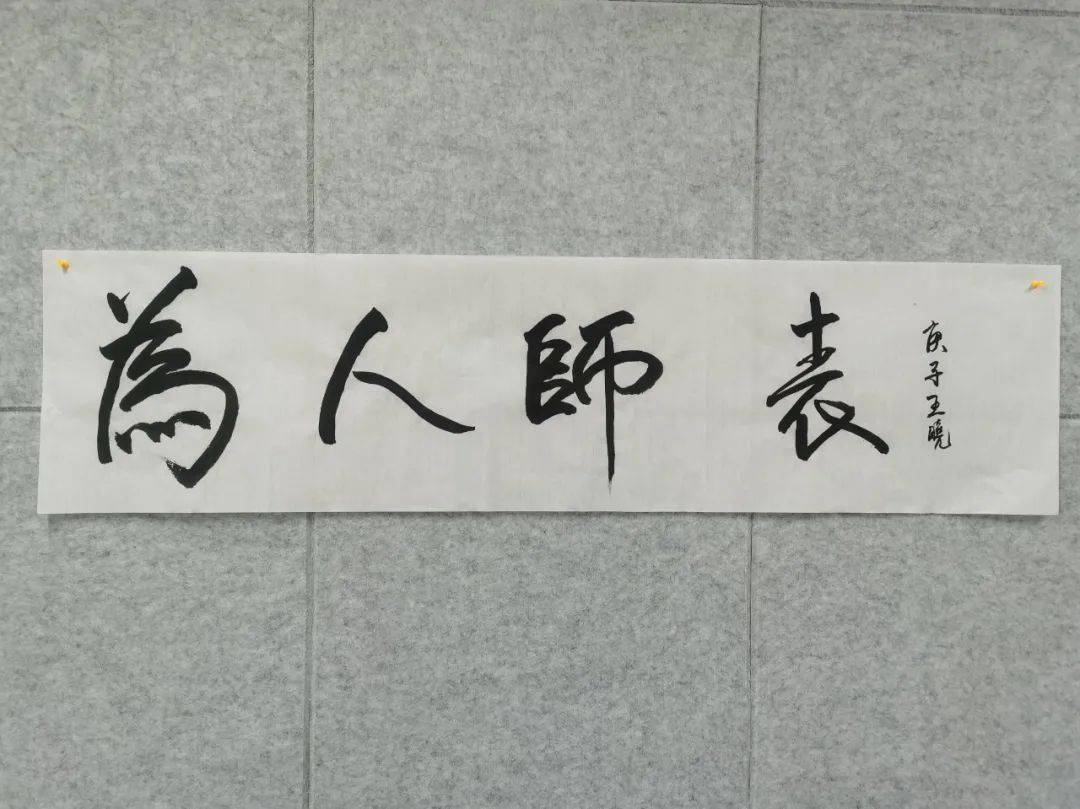 為人師表
庚子王曉